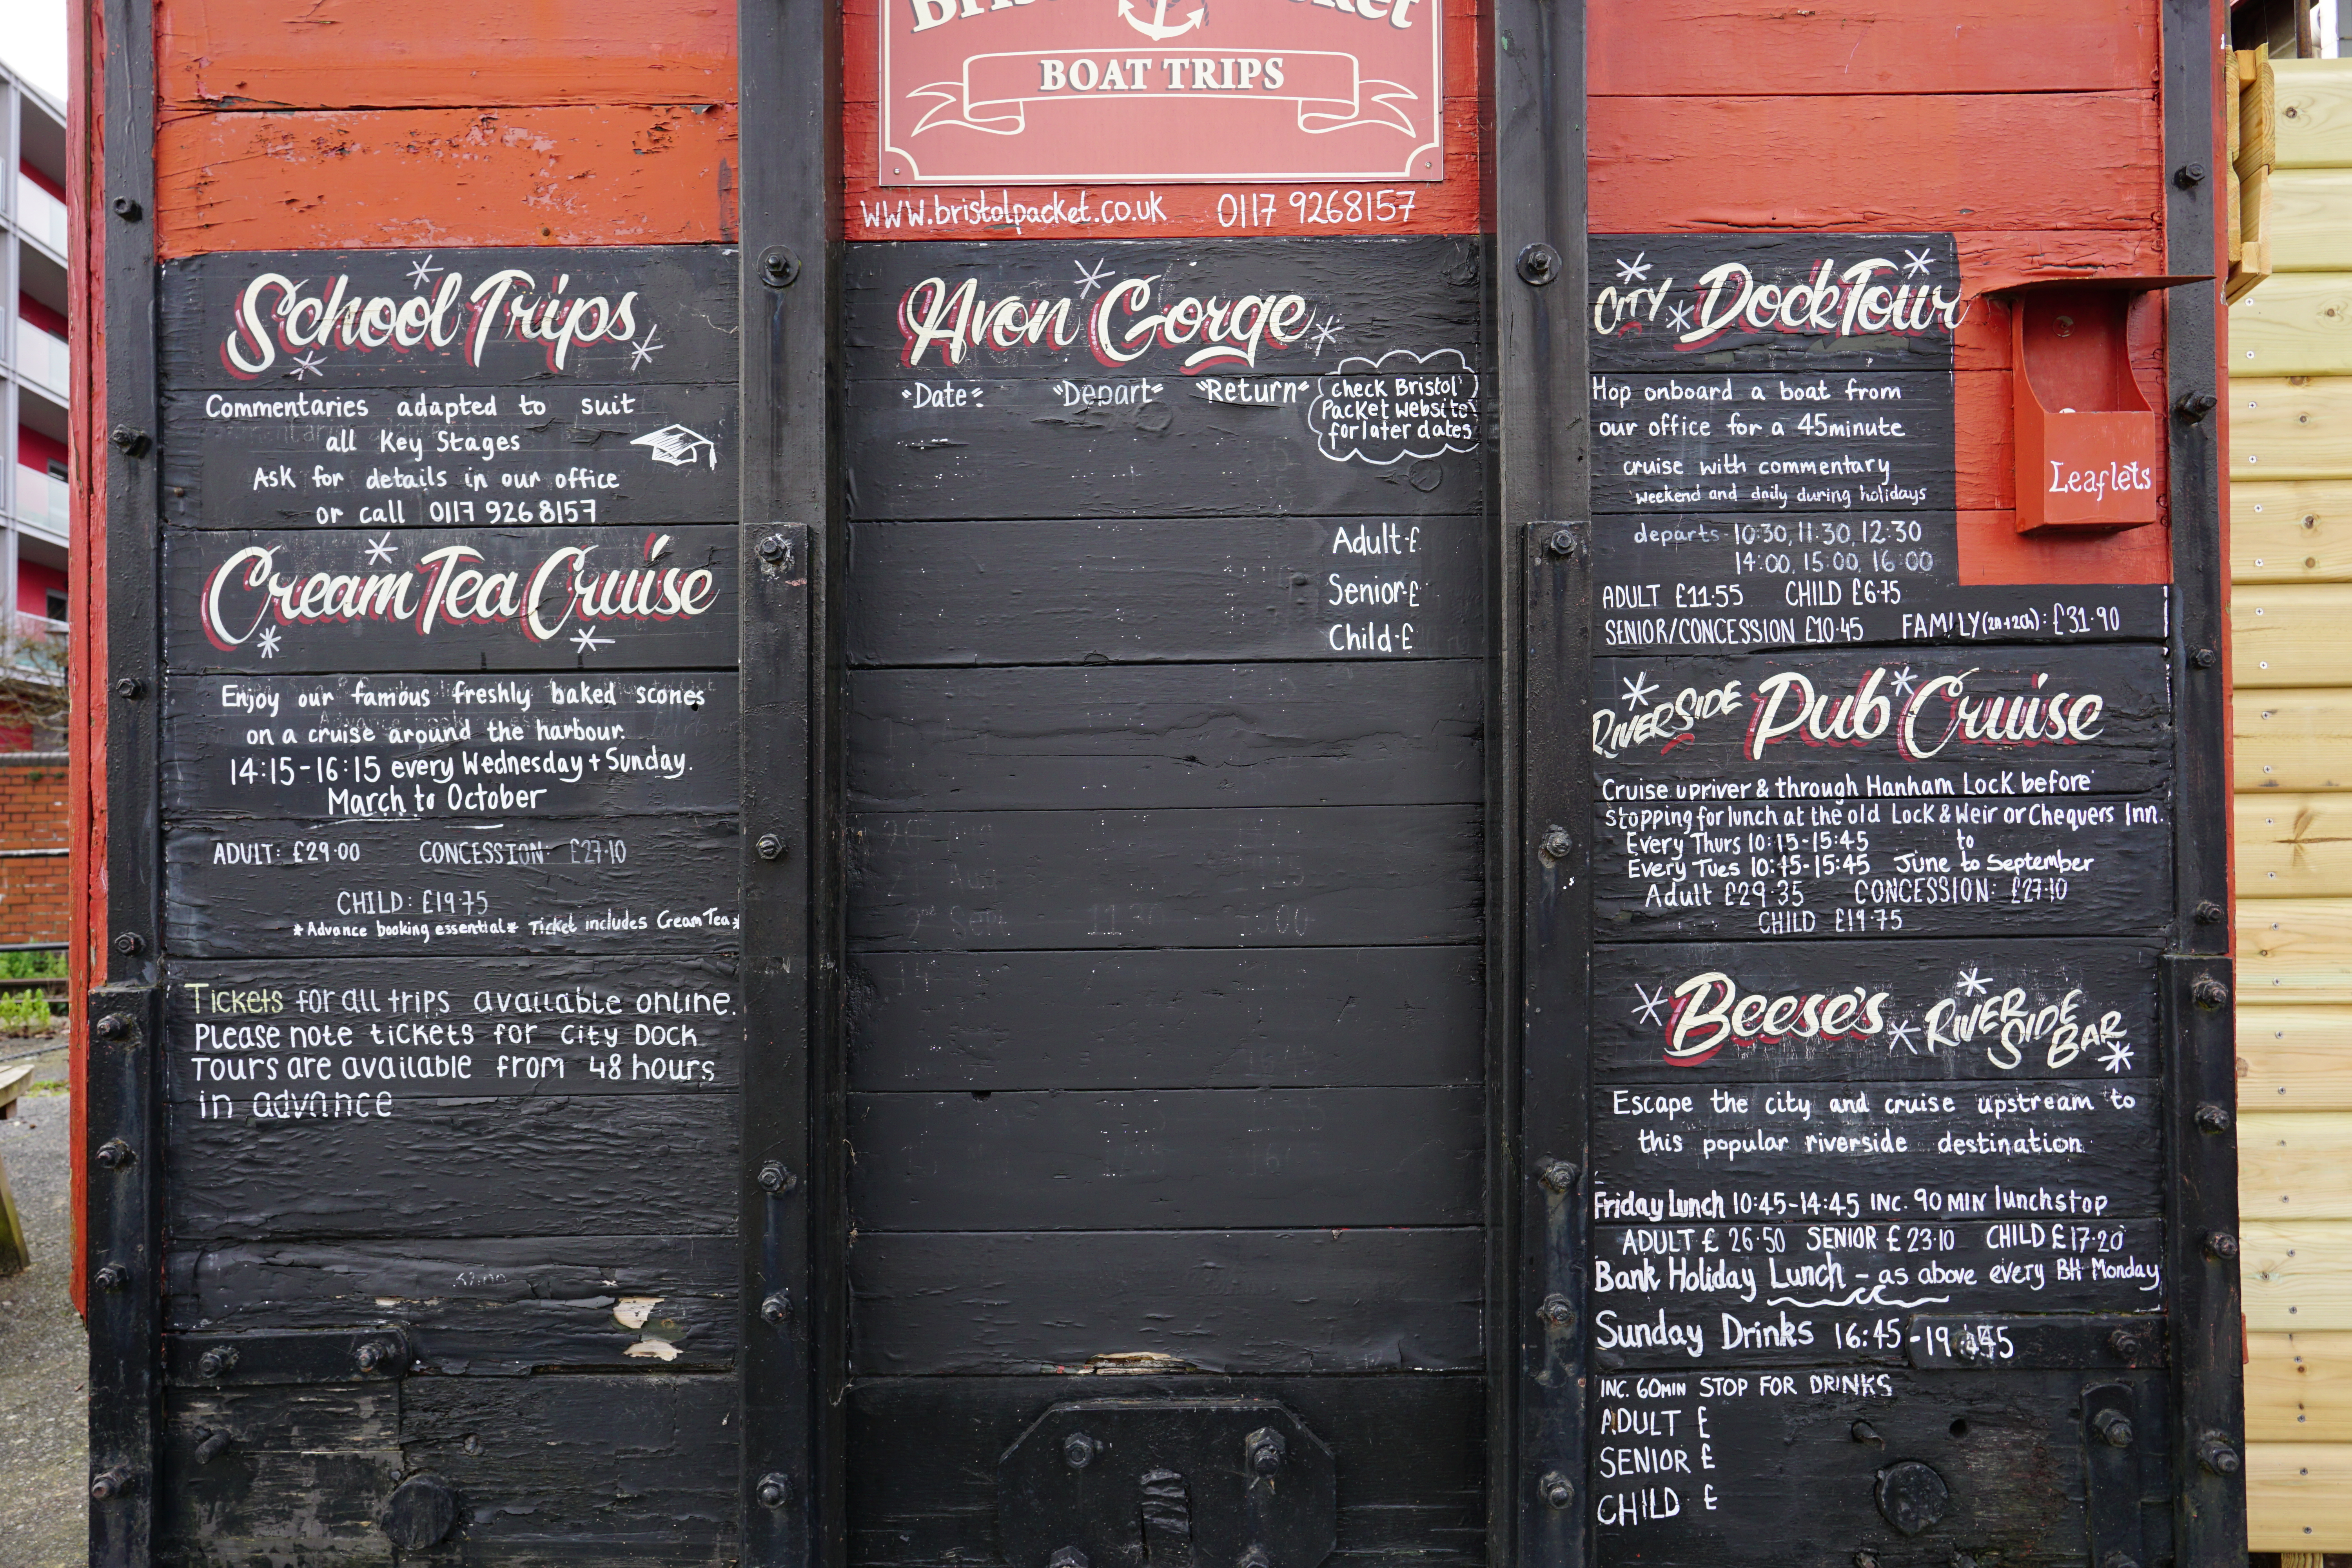 BOAT TRIPS
www.bristolpacket.co.uk 0117 9268157
School Trips
Commentaries adapted to suit
all Key Stages
Ask for details in our office
or call 0117 926 8157
Cream Tea Cruise
Enjoy our famous freshly baked scones
on a cruise around the harbour.
14:15-16:15 every Wednesday + Sunday.
March to October
ADULT: £29.00 CONCESSION: £27.10
CHILD: £19.75
*Advance booking essential* Ticket includes Cream Tea*
Tickets for all trips available online.
Please note tickets for City Dock
Tours are available from 48 hours
in advance
Avon Gorge
"Date" "Depart" "Return"
check Bristol
Packet website
for later dates
Adult £
Senior £
Child £
CITY Dock Tour
Hop onboard a boat from
our office for a 45minute
cruise with commentary
weekend and daily during holidays
departs 10:30, 11:30, 12:30
14:00, 15:00, 16:00
ADULT £11.55 CHILD £6.75
SENIOR/CONCESSION £10.45 FAMILY (2A+2Ch): £31.90
Leaflets
RIVERSIDE Pub Cruise
Cruise upriver & through Hanham Lock before
stopping for lunch at the old Lock & Weir or Chequers Inn.
Every Thurs 10:15-15:45 to
Every Tues 10:15-15:45 June to September
Adult £29.35 CONCESSION: £27.10
CHILD £19.75
Beese's RIVERSIDE BAR
Escape the city and cruise upstream to
this popular riverside destination
Friday Lunch 10:45-14:45 INC. 90 MIN lunchstop
ADULT £ 26.50 SENIOR £ 23.10 CHILD £17.20
Bank Holiday Lunch - as above every BH Monday
Sunday Drinks 16:45-19
INC. 60MIN STOP FOR DRINKS
ADULT £
SENIOR £
CHILD £